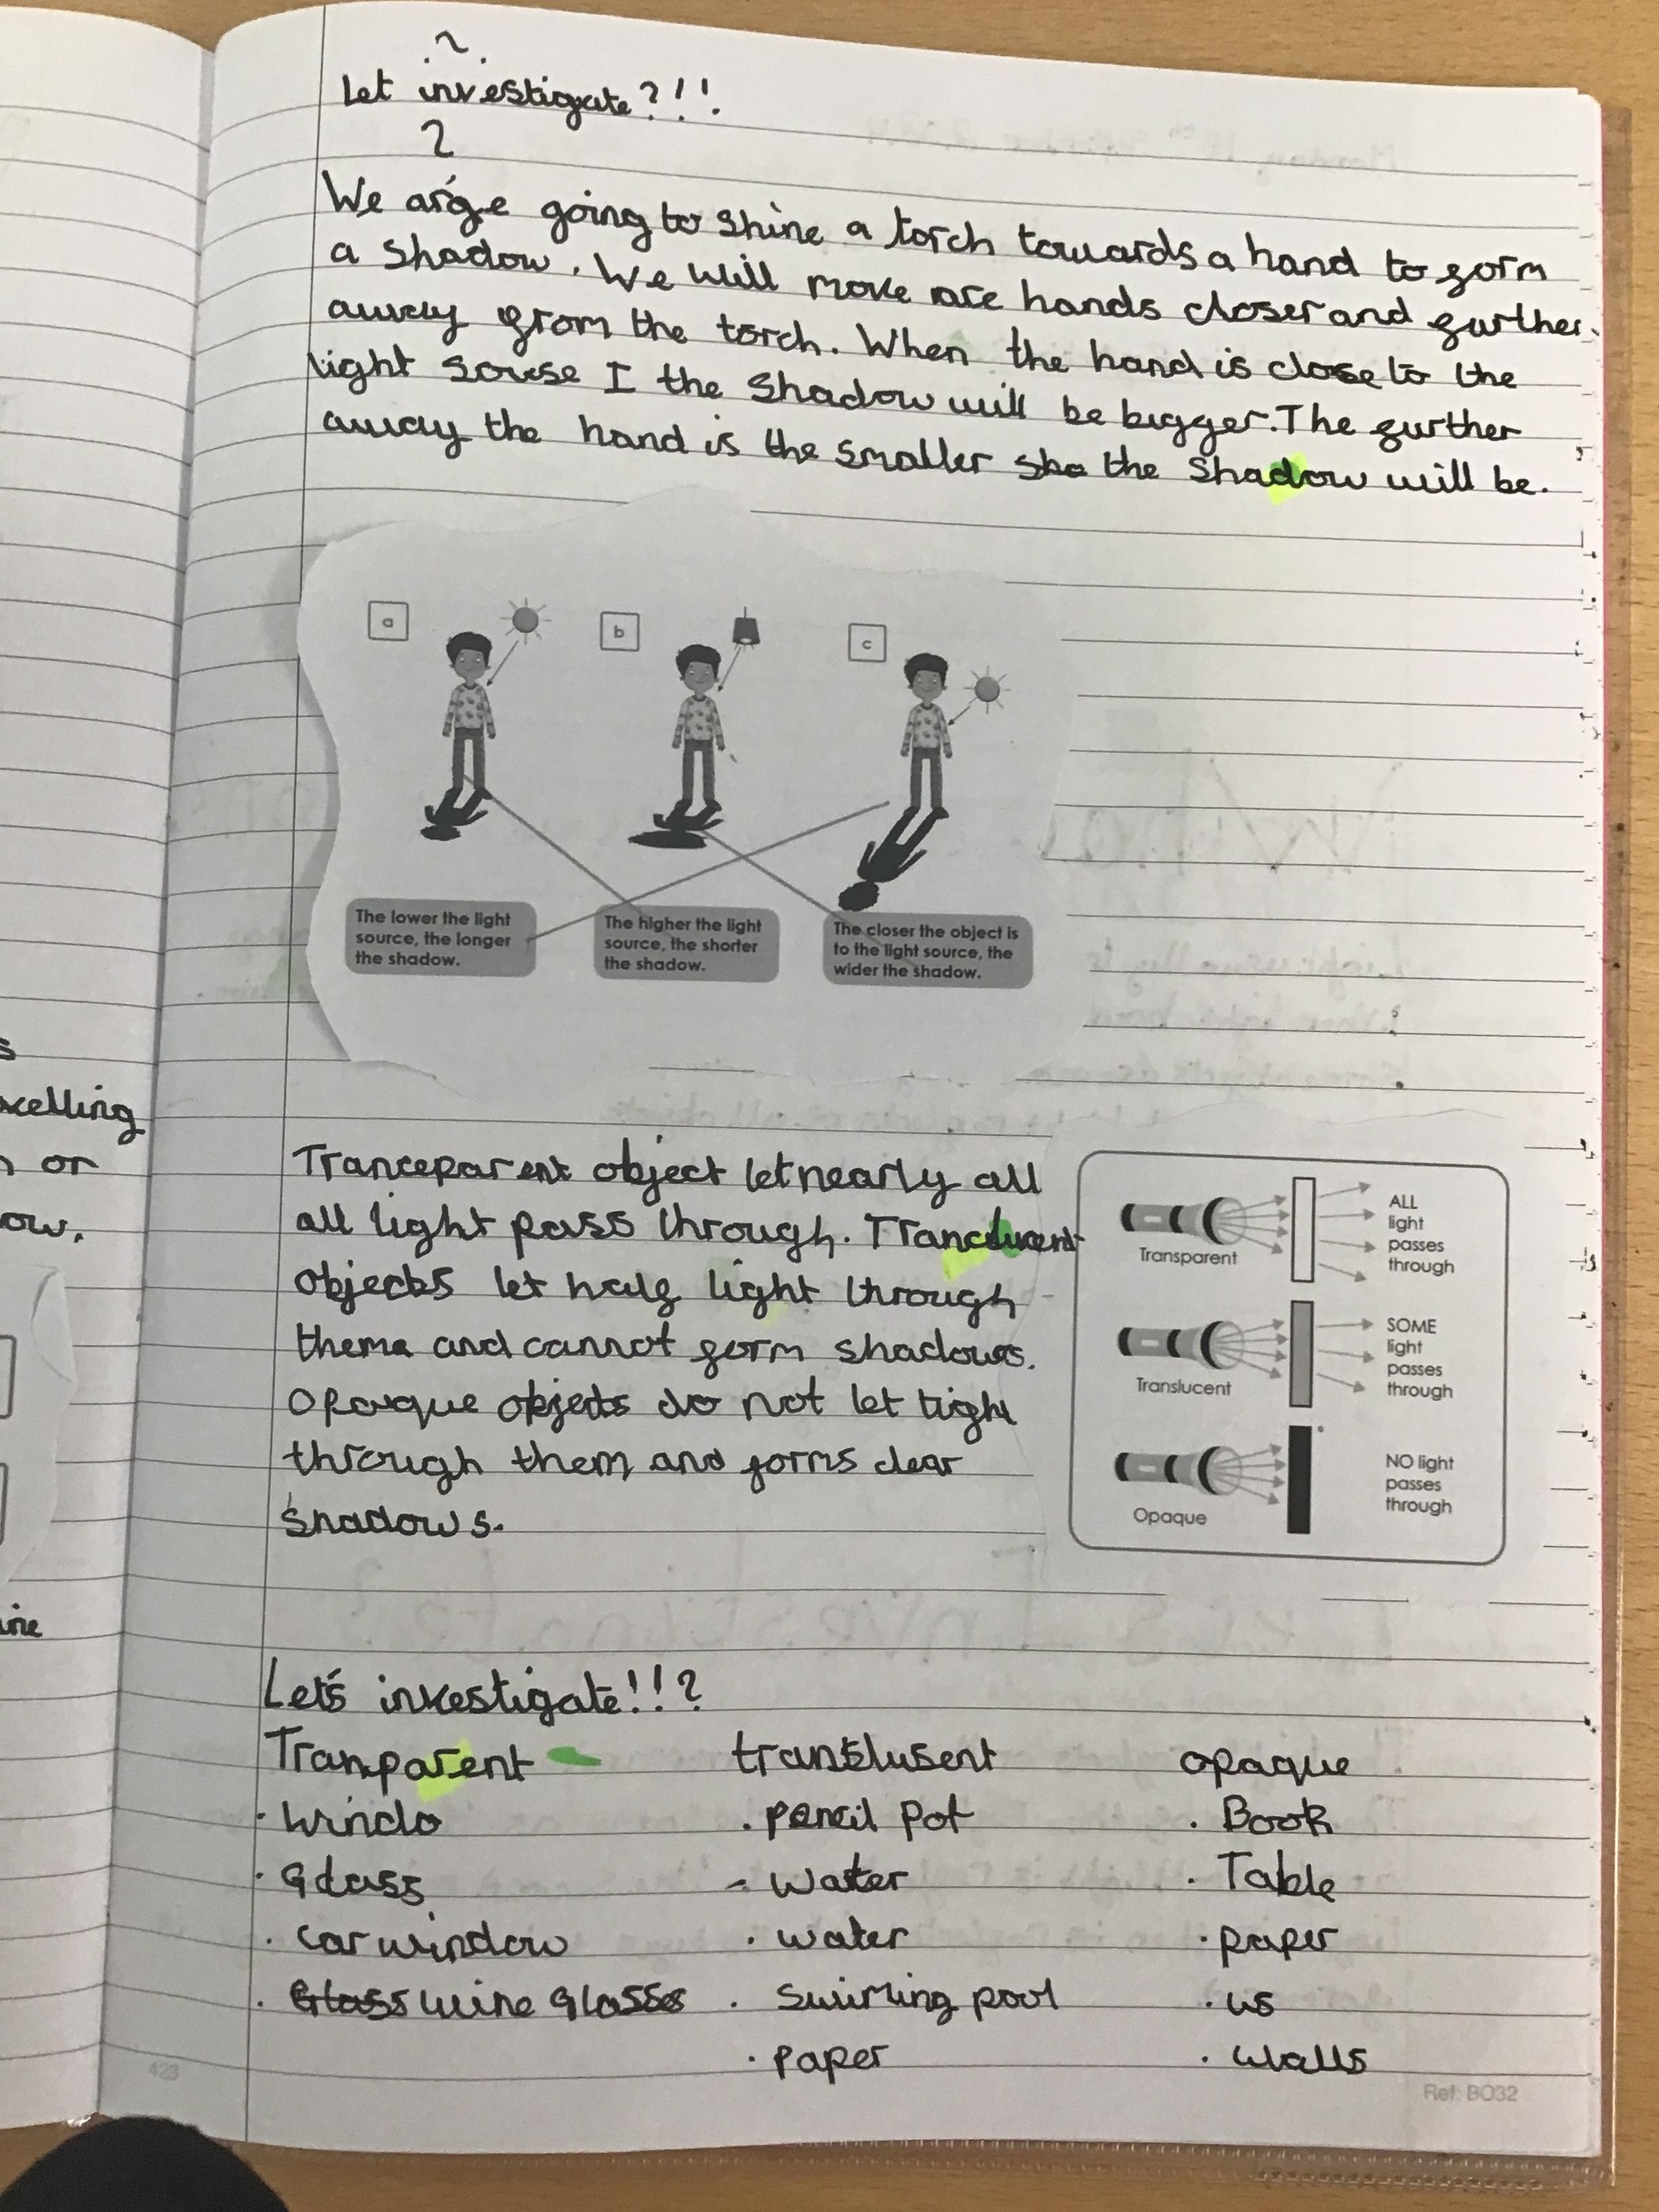 ?
Let investigate?!!
?
We are going to shine a torch towards a hand to form
a shadow. We will move are hands closer and further
away from the torch. When the hand is close to the
light sourse I the shadow will be bigger. The further
away the hand is the smaller sha the shadow will be.
a
b
c
The lower the light
source, the longer
the shadow.
The higher the light
source, the shorter
the shadow.
The closer the object is
to the light source, the
wider the shadow.
s
or
ow.
Tranceparent object let nearly all
all light pass through. Tranclucent
objects let half light through
thema and cannot form shadows.
Opaque objects do not let light
through them and forms clear
shadows.
Transparent
ALL
light
passes
through
Translucent
SOME
light
passes
through
Opaque
NO light
passes
through
Let's investigate!!?
Tranparent translusent opaque
· Windo · pencil pot · Book
· Glass - water · Table
· car window · water · paper
· Glass wine Glasses · swimling pool · us
· paper · walls
423
Ref: BO32